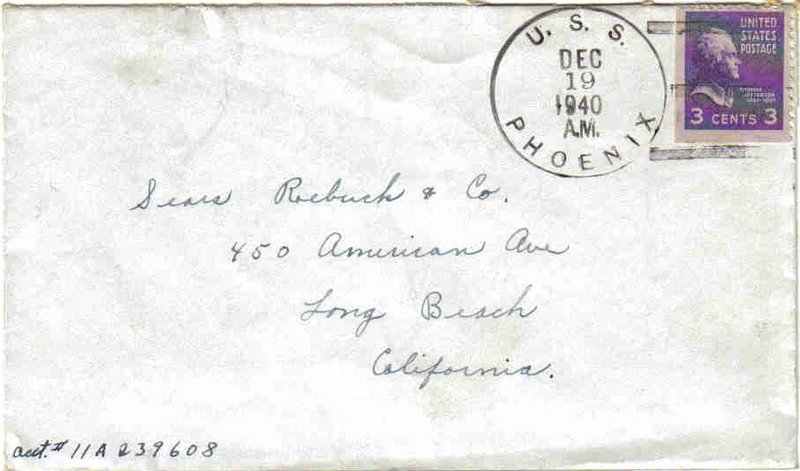 U. S. S.
DEC
19
1940
A.M.
PHOENIX
UNITED
STATES
POSTAGE
THOMAS
JEFFERSON
3 CENTS 3
Sears Roebuck & Co.
450 American Ave
Long Beach
California.
acct. # 11A239608